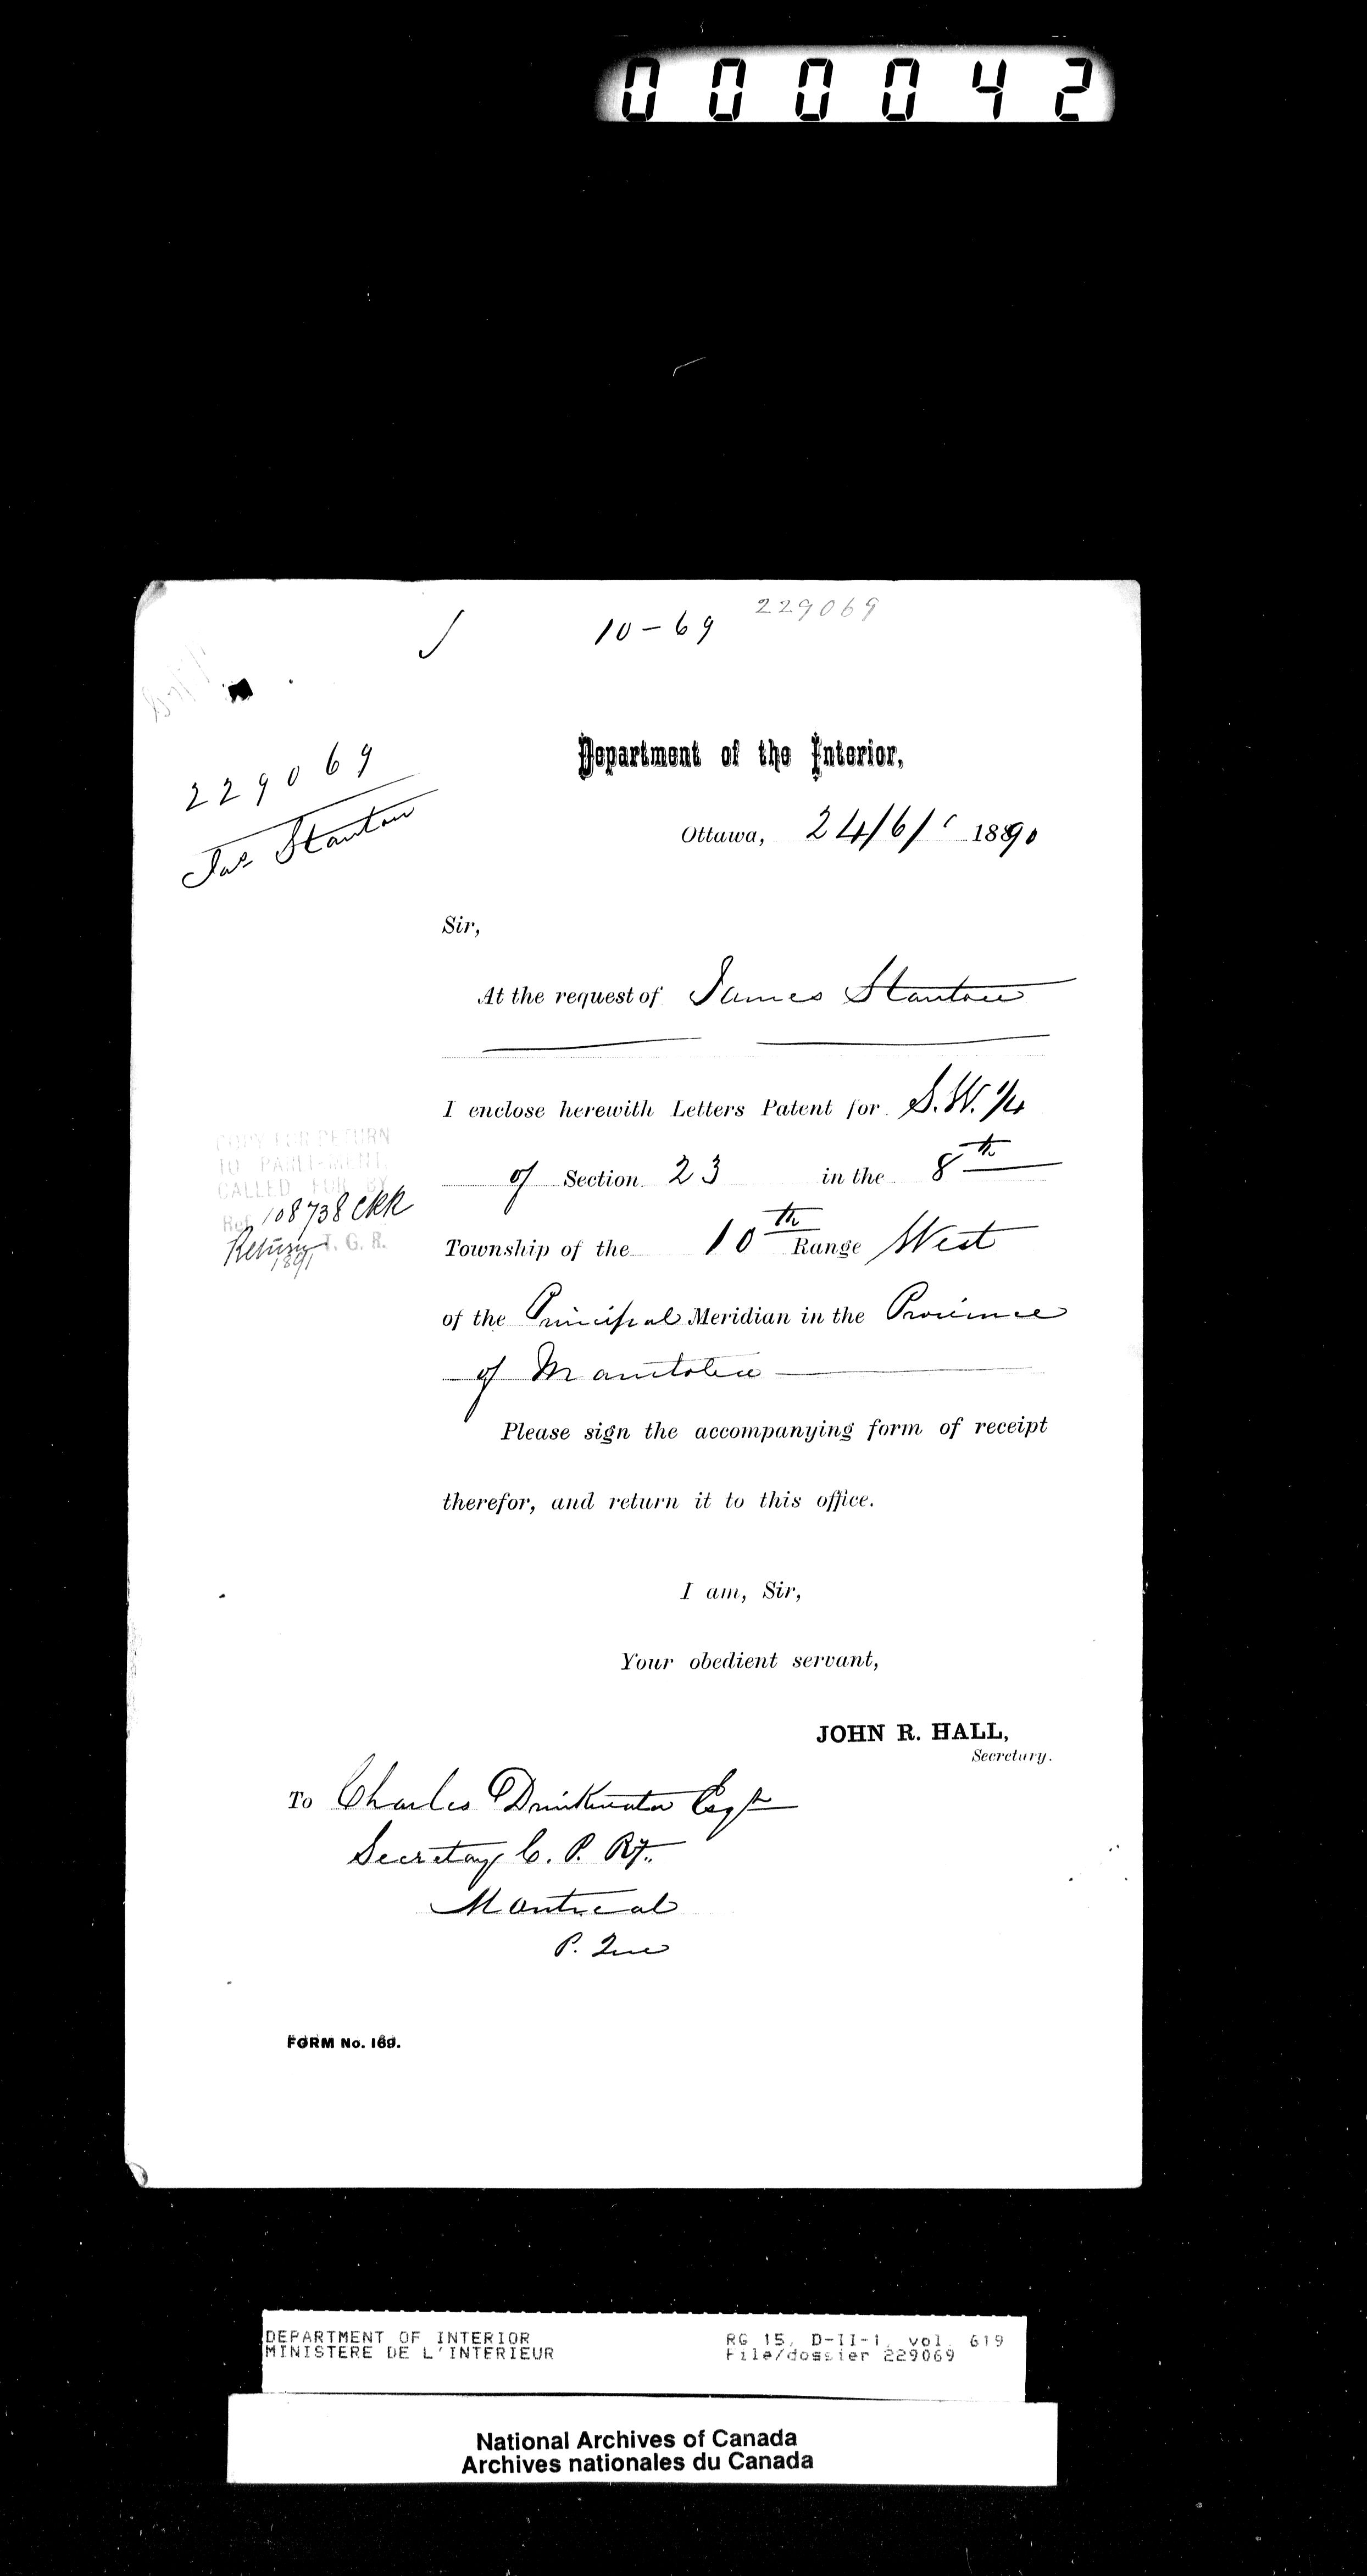 000042
10-69 229069
229069
Jas Stanton
Department of the Interior,
Ottawa, 24/6/ 1890
Sir,
At the request of James Stanton
I enclose herewith Letters Patent for S.W. 1/4
of Section 23 in the 8th
COPY FOR RETURN
TO PARLIAMENT,
CALLED FOR BY
Ref. 108738 CRR
Return T. G. R.
1891
Township of the 10th Range West
of the Principal Meridian in the Province
of Manitoba
Please sign the accompanying form of receipt
therefor, and return it to this office.
I am, Sir,
Your obedient servant,
JOHN R. HALL,
Secretary.
To Charles Drinkwater Esqr
Secretary C. P. Ry.
Montreal
P. Que
FORM No. 169.
DEPARTMENT OF INTERIOR
MINISTERE DE L'INTERIEUR
RG 15, D-II-1, vol. 619
File/dossier 229069
National Archives of Canada
Archives nationales du Canada